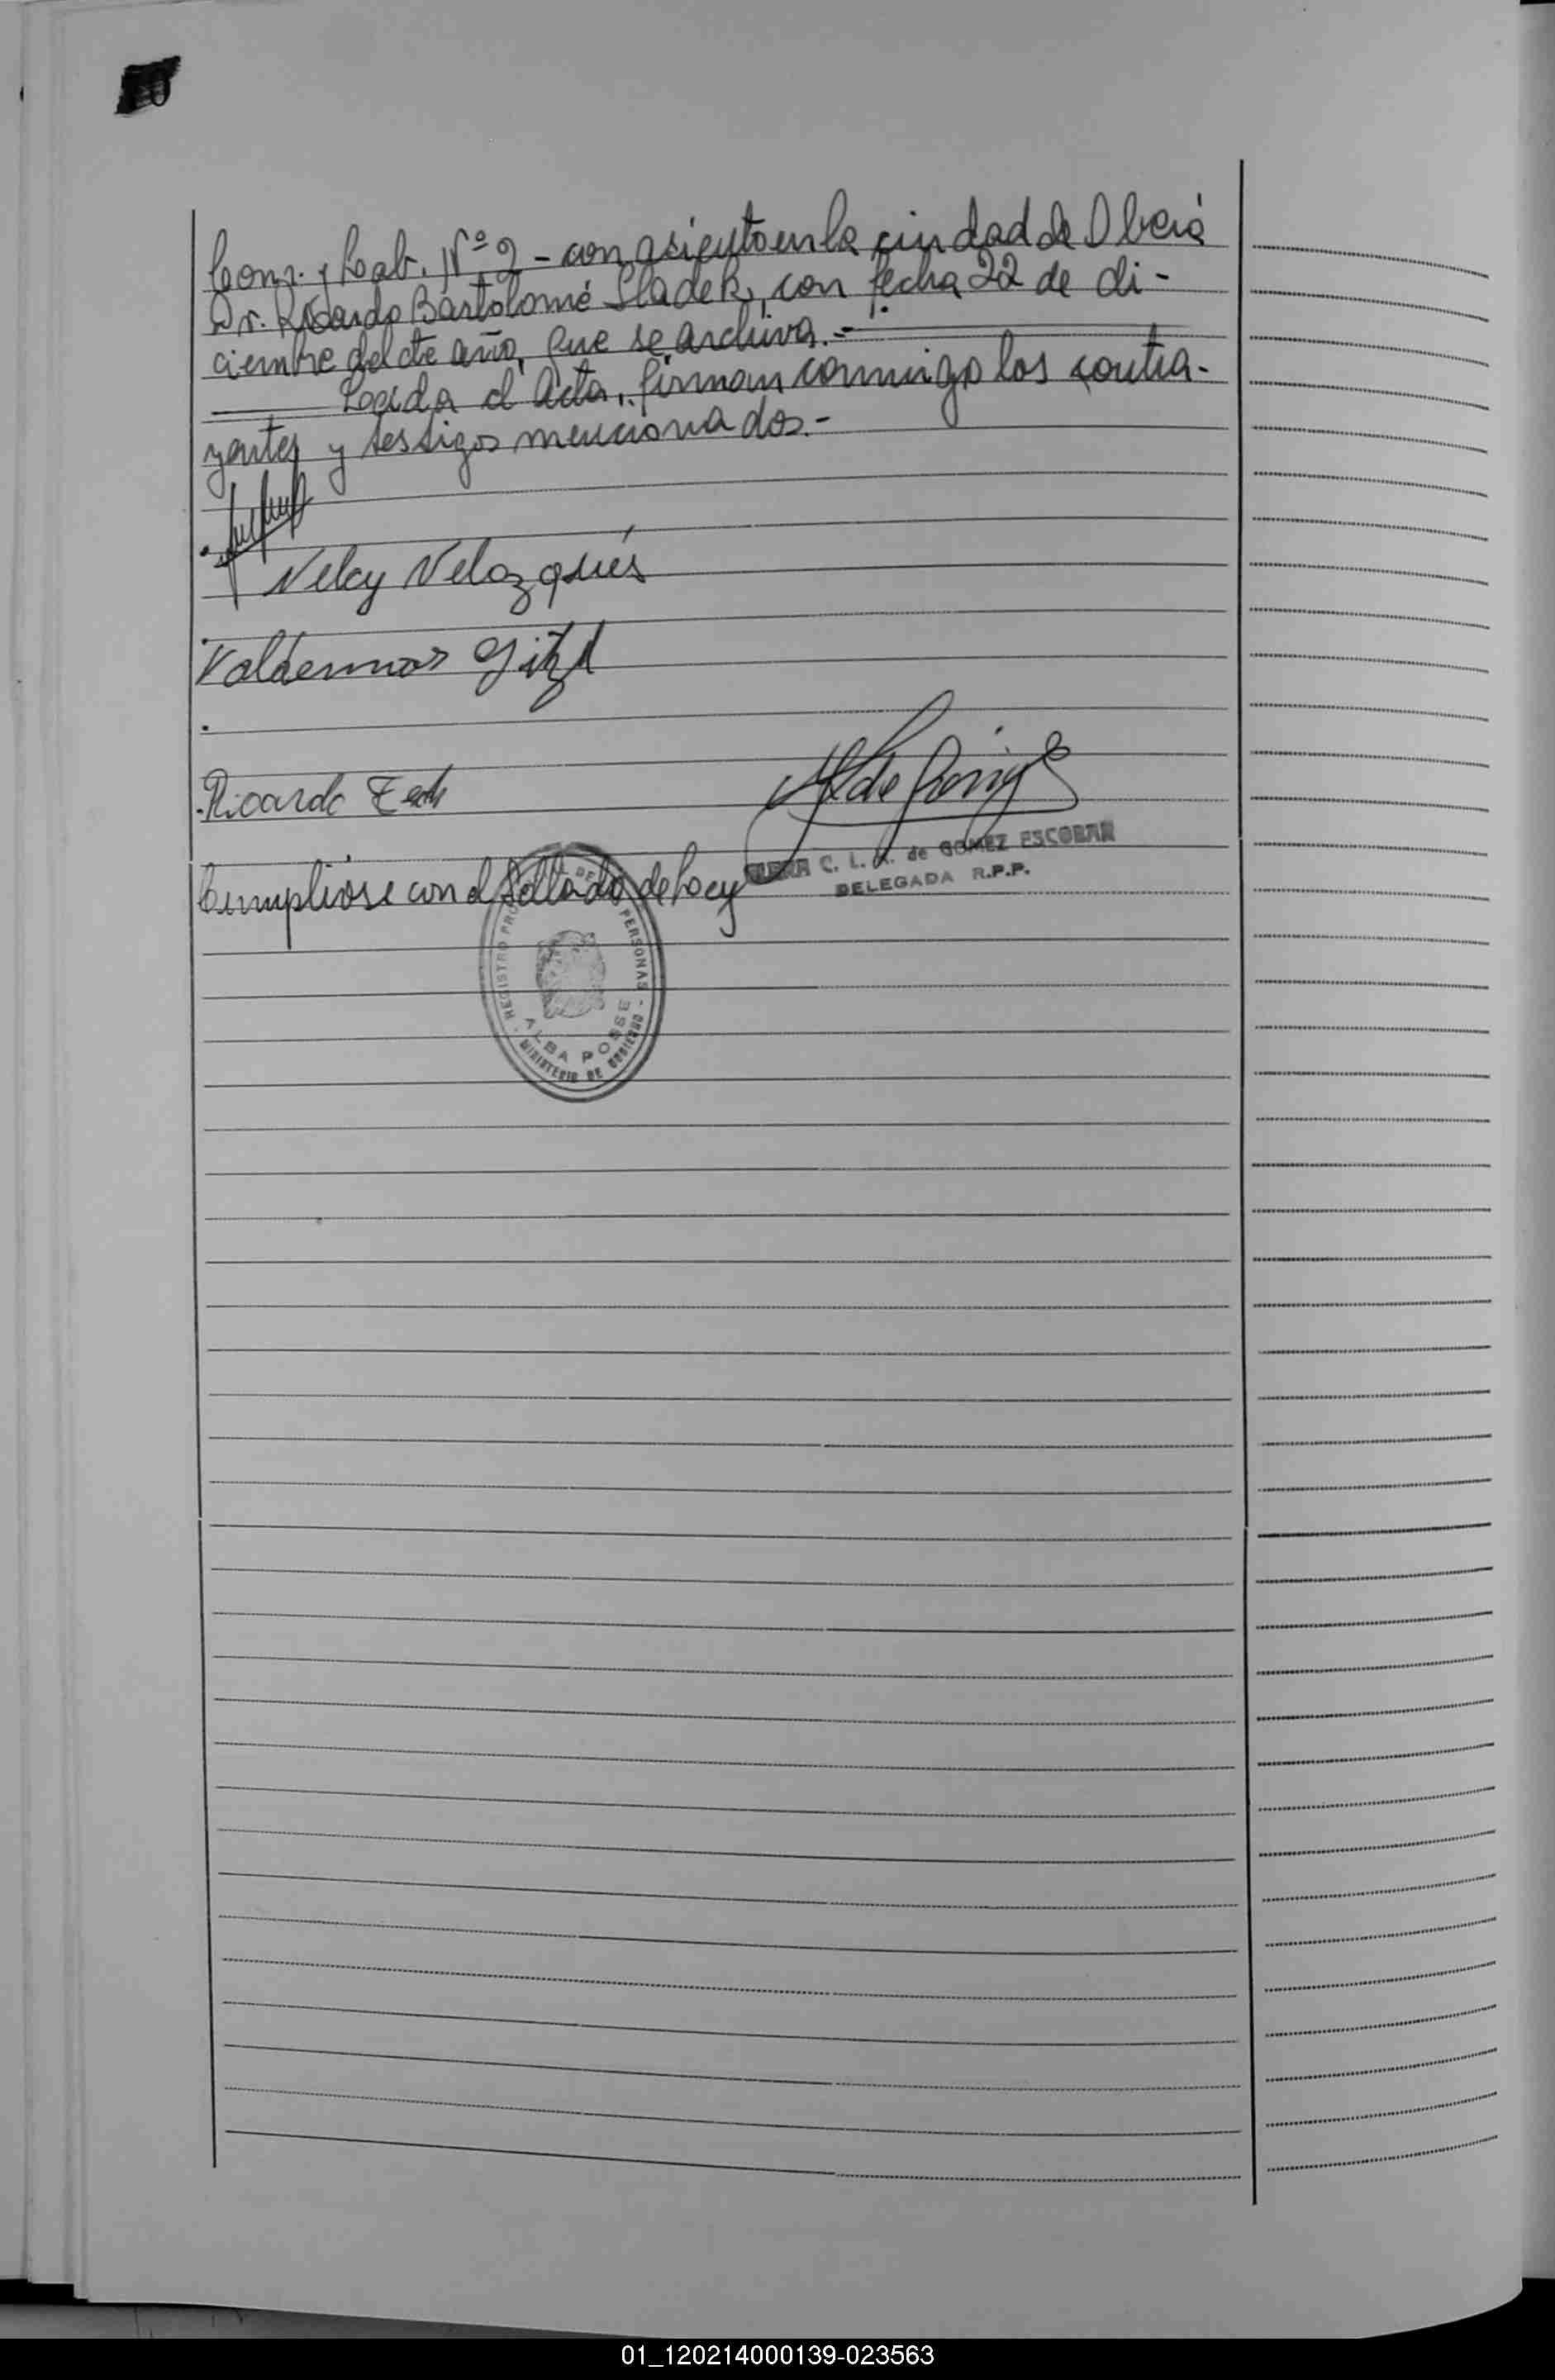 Com. y Lab. Nº 2 - con asiento en la ciudad de Oberá
Dr. Ricardo Bartolomé Sladek, con fecha 22 de di-
ciembre del cte año, que se archiva.-
Leída el Acta, firman conmigo los contra-
yentes y testigos mencionados.-
Nelcy Velozqués
Valdemar
Ricardo
C. L. de GOMEZ ESCOBAR
DELEGADA R.P.P.
Cumplióse con el sellado de Ley
REGISTRO DE PERSONAS
ALBA POSSE
MINISTERIO DE GOBIERNO
01_120214000139-023563